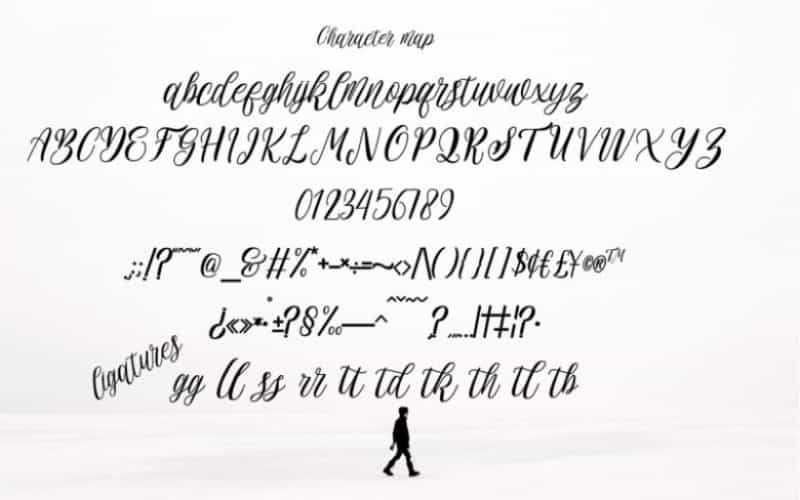 Character map
abcdefghijklmnopqrstuvwxyz
ABCDEFGHIJKLMNOPQRSTUVWXYZ
0123456789
@_&#%*+-×÷=~<>/\(){}[]$¢€£¥©®™
¿«»±?§‰—^
ligatures
gg ll ss rr tt td tk th tl tb